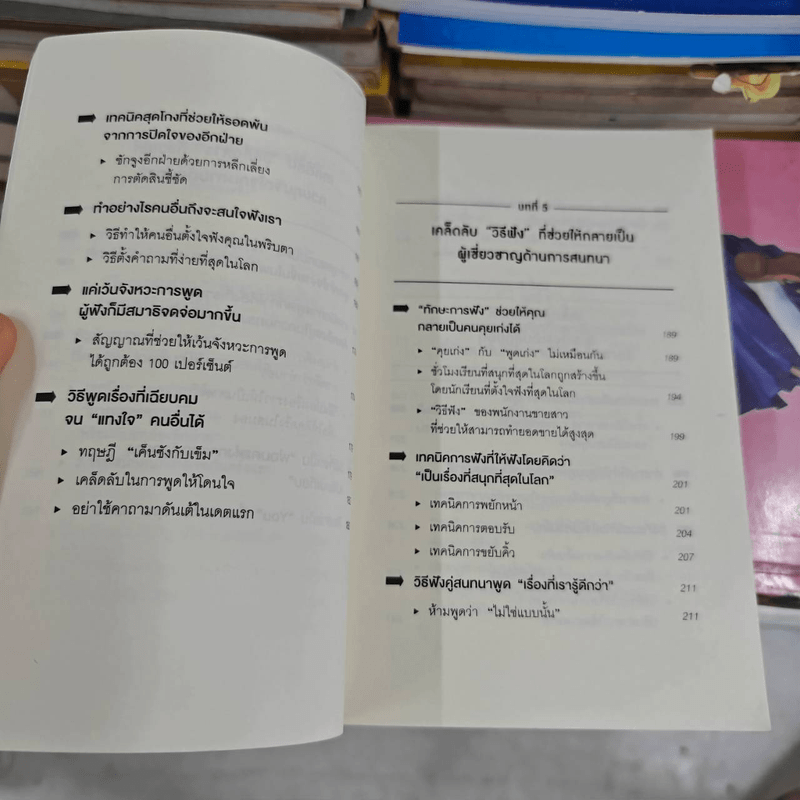 เทคนิคสุดโกงที่ช่วยให้รอดพ้น
จากการปิดใจของอีกฝ่าย
ชักจูงอีกฝ่ายด้วยการหลีกเลี่ยง
การตัดสินชี้ชัด
ทำอย่างไรคนอื่นถึงจะสนใจฟังเรา
วิธีทำให้คนอื่นตั้งใจฟังคุณในพริบตา
วิธีตั้งคำถามที่ง่ายที่สุดในโลก
แค่เว้นจังหวะการพูด
ผู้ฟังก็มีสมาธิจดจ่อมากขึ้น
สัญญาณที่ช่วยให้เว้นจังหวะการพูด
ได้ถูกต้อง 100 เปอร์เซ็นต์
วิธีพูดเรื่องที่เฉียบคม
จน "แทงใจ" คนอื่นได้
ทฤษฎี "เค็นซังกับเข็ม"
เคล็ดลับในการพูดให้โดนใจ
อย่าใช้คาถามาดันเต้ในเดตแรก
บทที่ 5
เคล็ดลับ "วิธีฟัง" ที่ช่วยให้กลายเป็น
ผู้เชี่ยวชาญด้านการสนทนา
"ทักษะการฟัง" ช่วยให้คุณ
กลายเป็นคนคุยเก่งได้ 189
"คุยเก่ง" กับ "พูดเก่ง" ไม่เหมือนกัน 189
ชั่วโมงเรียนที่สนุกที่สุดในโลกถูกสร้างขึ้น
โดยนักเรียนที่ตั้งใจฟังที่สุดในโลก 194
"วิธีฟัง" ของพนักงานขายสาว
ที่ช่วยให้สามารถทำยอดขายได้สูงสุด 199
เทคนิคการฟังที่ให้ฟังโดยคิดว่า
"เป็นเรื่องที่สนุกที่สุดในโลก" 201
เทคนิคการพยักหน้า 201
เทคนิคการตอบรับ 204
เทคนิคการขยับคิ้ว 207
วิธีฟังคู่สนทนาพูด "เรื่องที่เรารู้ดีกว่า" 211
ห้ามพูดว่า "ไม่ใช่แบบนั้น" 211